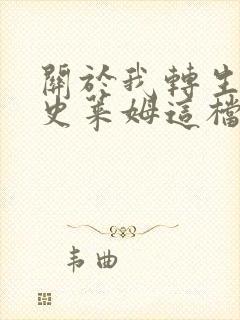 關於我轉生
史萊姆這檔
韦曲